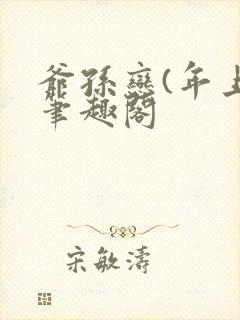 爺孫戀(年上
笔趣阁
宋敏濤